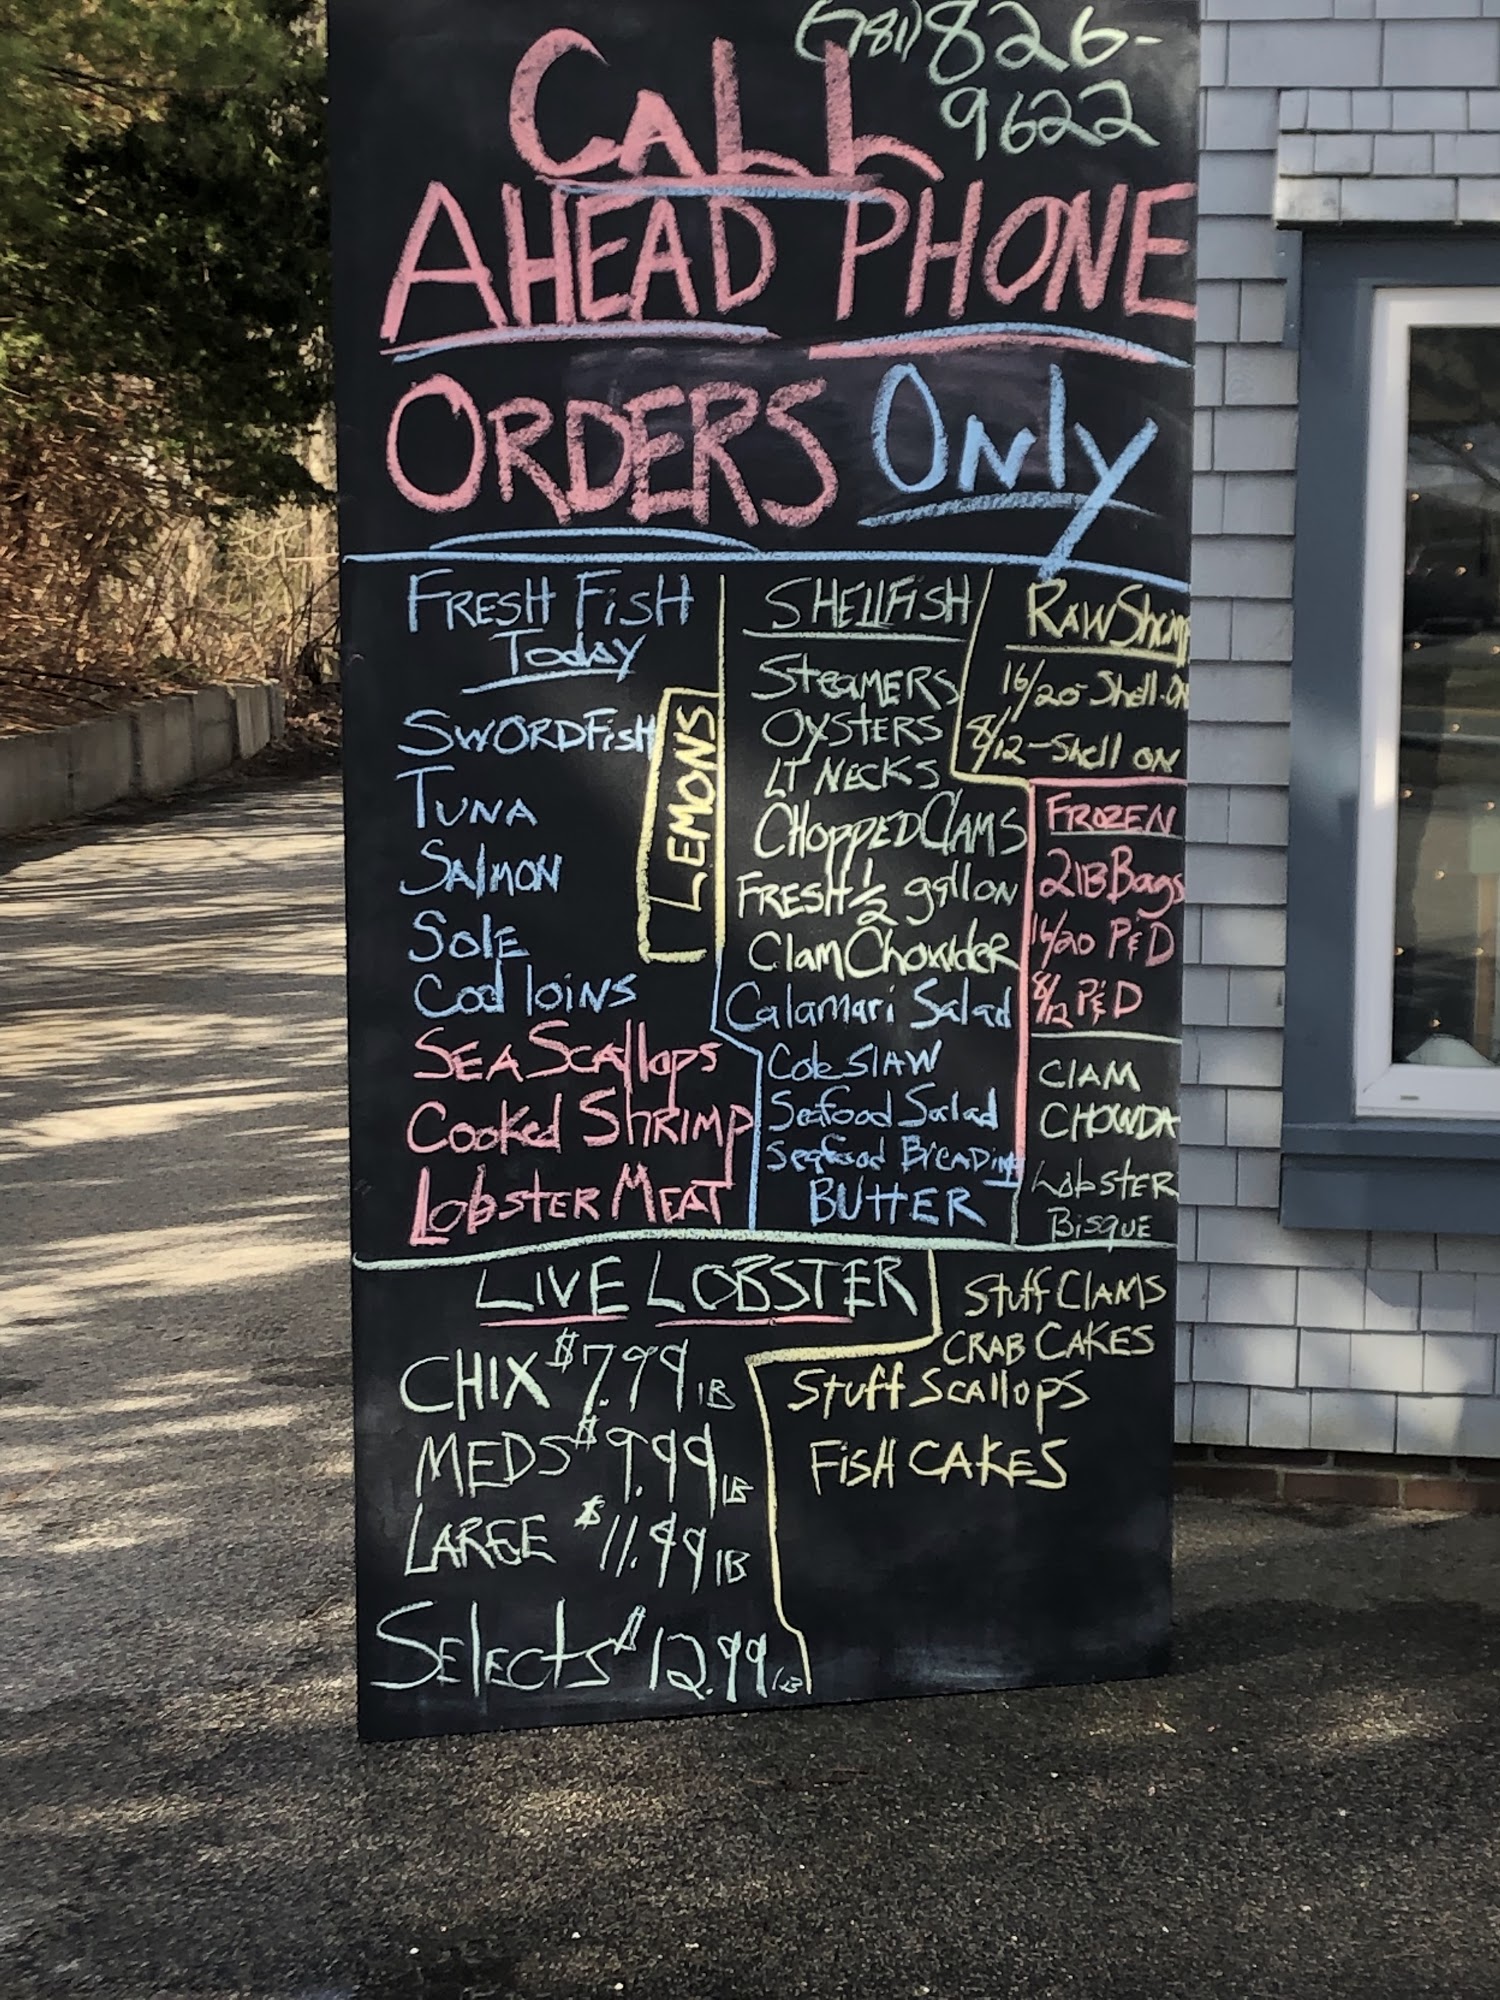 (781) 826-
9622
CALL
AHEAD PHONE
ORDERS ONly
FRESH FiSH
Today
SWORDFisH
TUNA
SAlMON
SOlE
Cod loiNS
SEA SCAllops
Cooked SHRIMP
LobSTER MEAT
LEMONS
SHEllFiSH
STEAMERS
OYSTERS
LT NECKS
CHoppED ClAMS
FRESH 1/2 gallON
Clam CHowdeR
Calamari Salad
Cole SlAW
Seafood Salad
Seafood BreADing
BUttER
RAW Shrimp
16/20 - Shell-ON
8/12 - Shell ON
FROZEN
2 lB Bags
16/20 P&D
8/12 P&D
ClAM
CHOWDA
LobSTER
Bisque
LIVE LOBSTER
CHIX $7.99 lB
MEDS $9.99 LB
LARGE $11.99 lB
SElEctS $12.99 LB
Stuff ClAMS
CRAB CAKES
Stuff Scallops
FisH CAKES